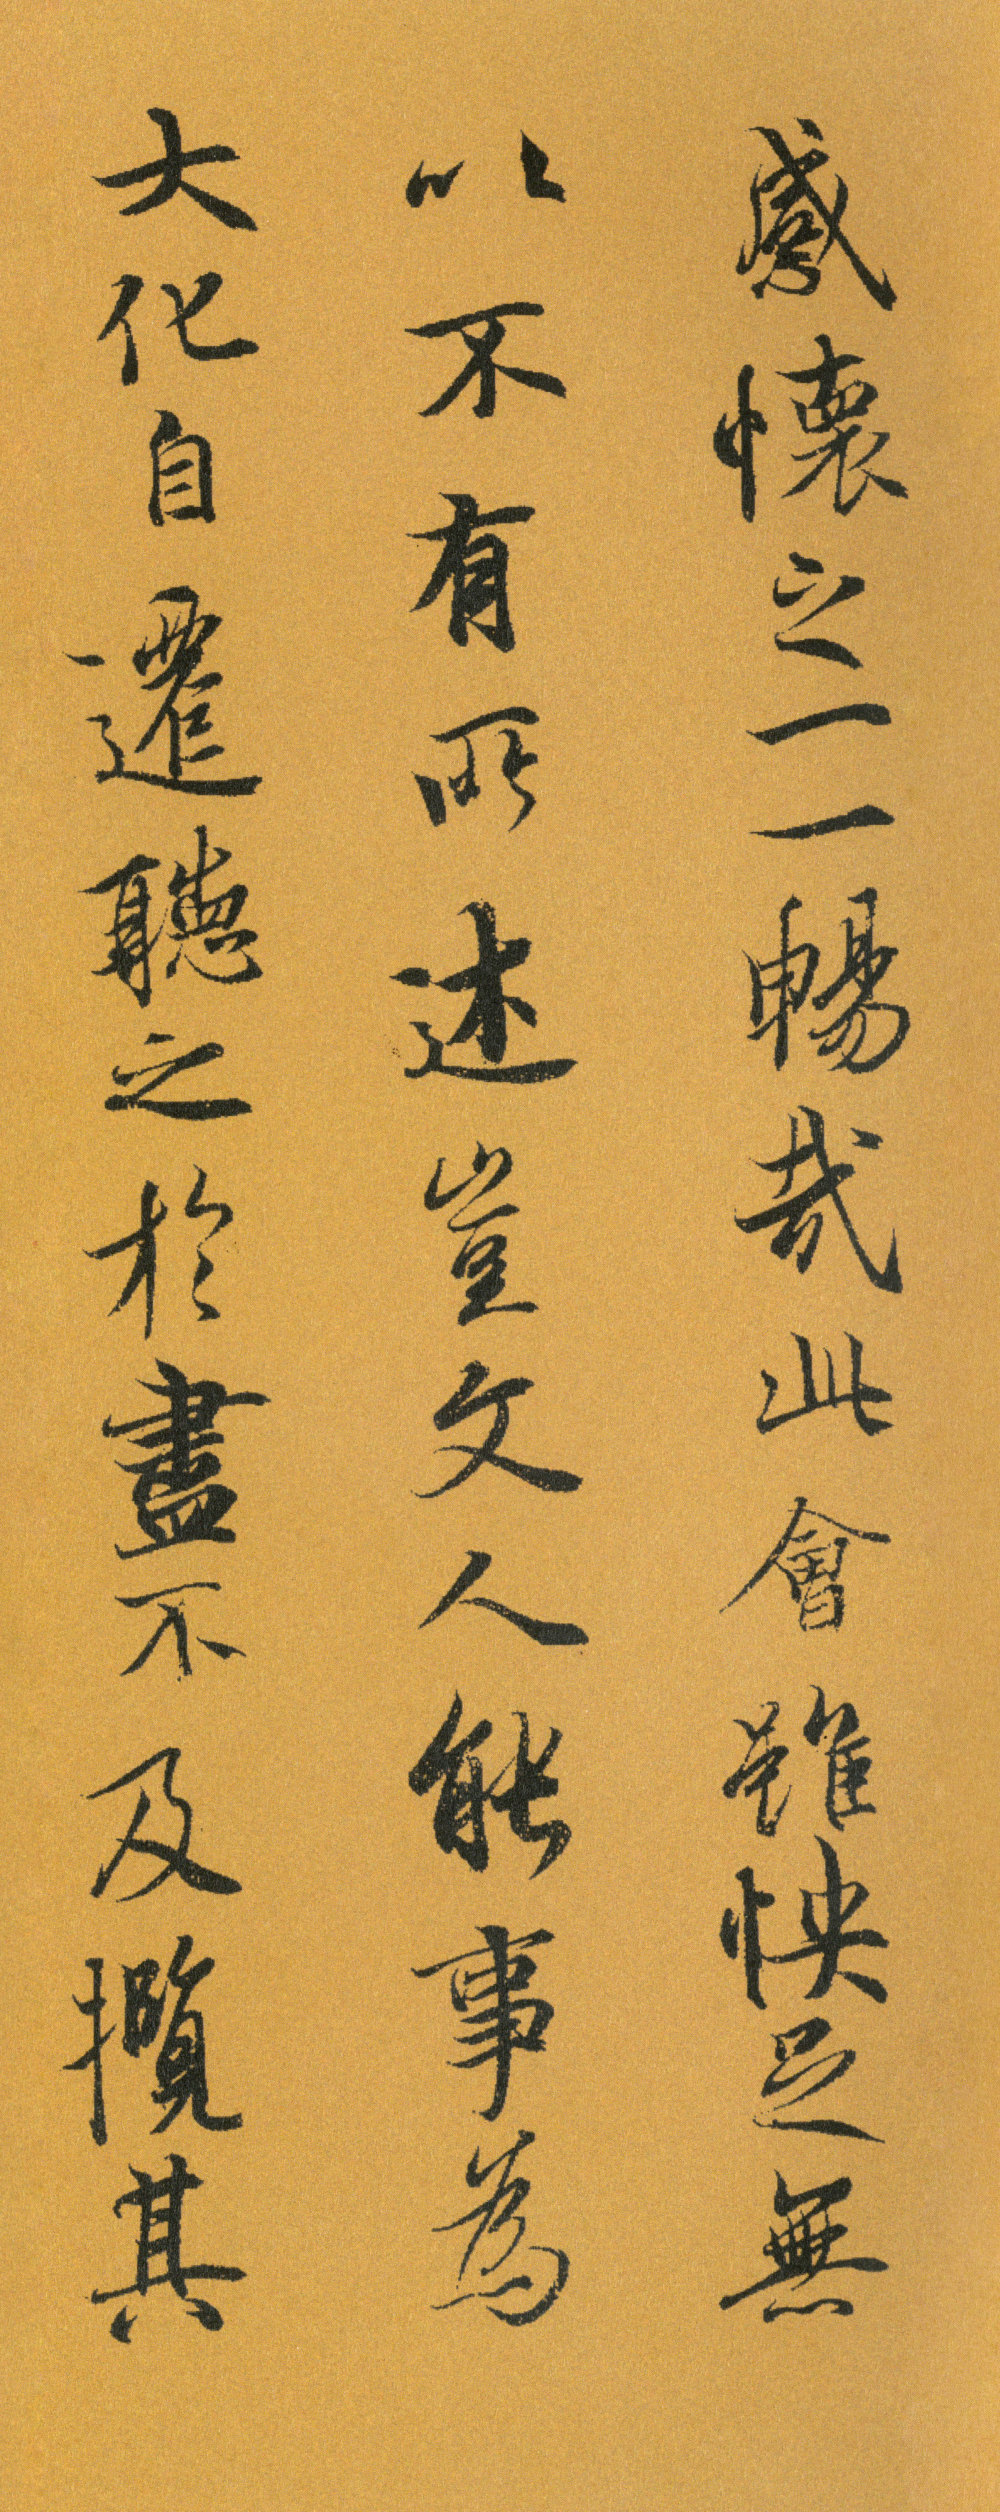 感懷之一一暢哉此會雖怏足無
以不有所述豈文人能事為
大化自遷聽之於盡不及攬其